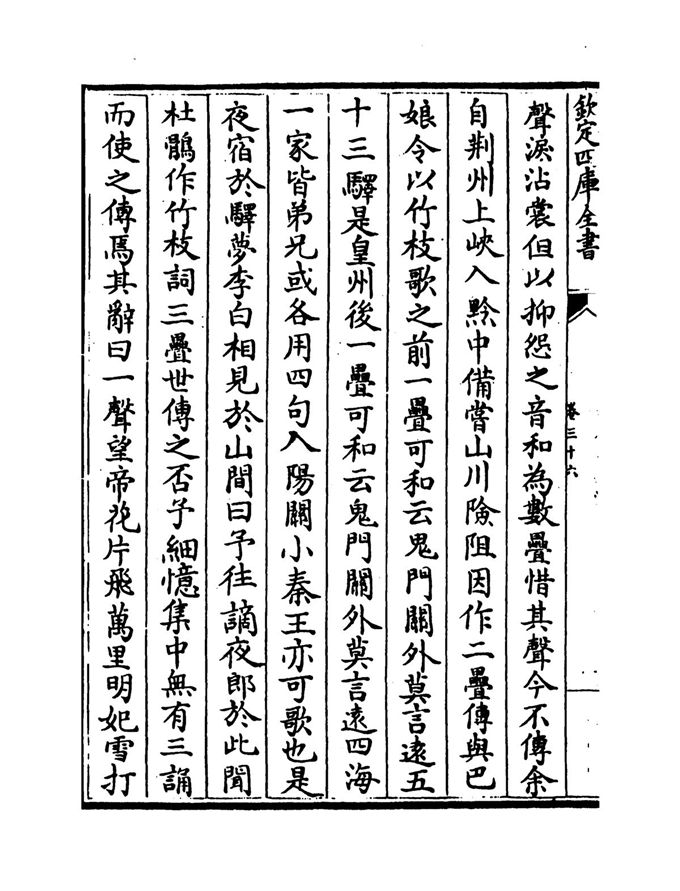 欽定四庫全書
卷三十六
聲淚沾裳但以抑怨之音和為數疊惜其聲今不傳余
自荆州上峽入黔中備嘗山川險阻因作二疊傳與巴
娘令以竹枝歌之前一疊可和云鬼門關外莫言遠五
十三驛是皇州後一疊可和云鬼門關外莫言遠四海
一家皆弟兄或各用四句入陽關小秦王亦可歌也是
夜宿於驛夢李白相見於山間曰予往謫夜郎於此聞
杜鵑作竹枝詞三疊世傳之否予細憶集中無有三誦
而使之傳焉其辭曰一聲望帝花片飛萬里明妃雪打